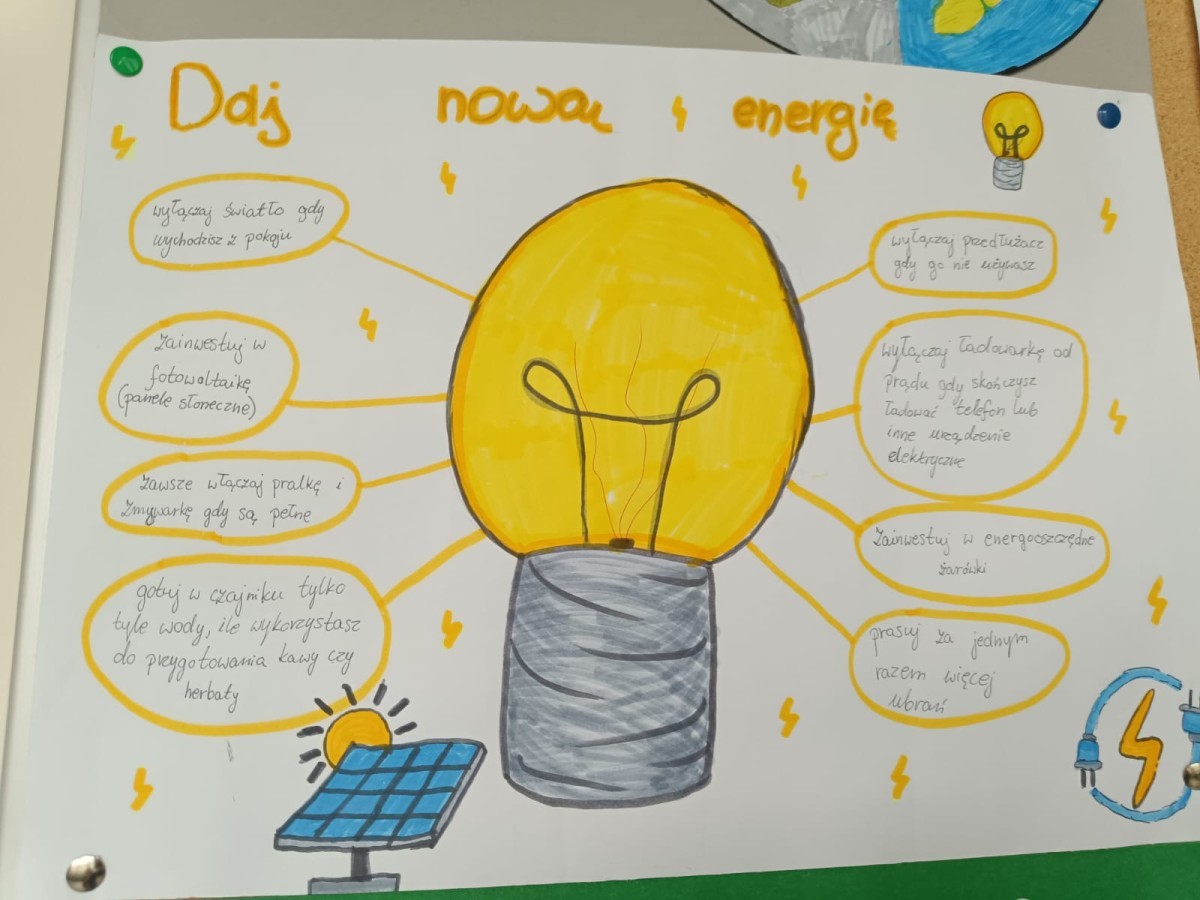 Daj nową energię
wyłączaj światło gdy
wychodzisz z pokoju
zainwestuj w
fotowoltaikę
(panele słoneczne)
zawsze włączaj pralkę i
zmywarkę gdy są pełne
gotuj w czajniku tylko
tyle wody, ile wykorzystasz
do przygotowania kawy czy
herbaty
wyłączaj przedłużacz
gdy go nie używasz
wyłączaj ładowarkę od
prądu gdy skończysz
ładować telefon lub
inne urządzenie
elektryczne
zainwestuj w energooszczędne
żarówki
prasuj za jednym
razem więcej
ubrań